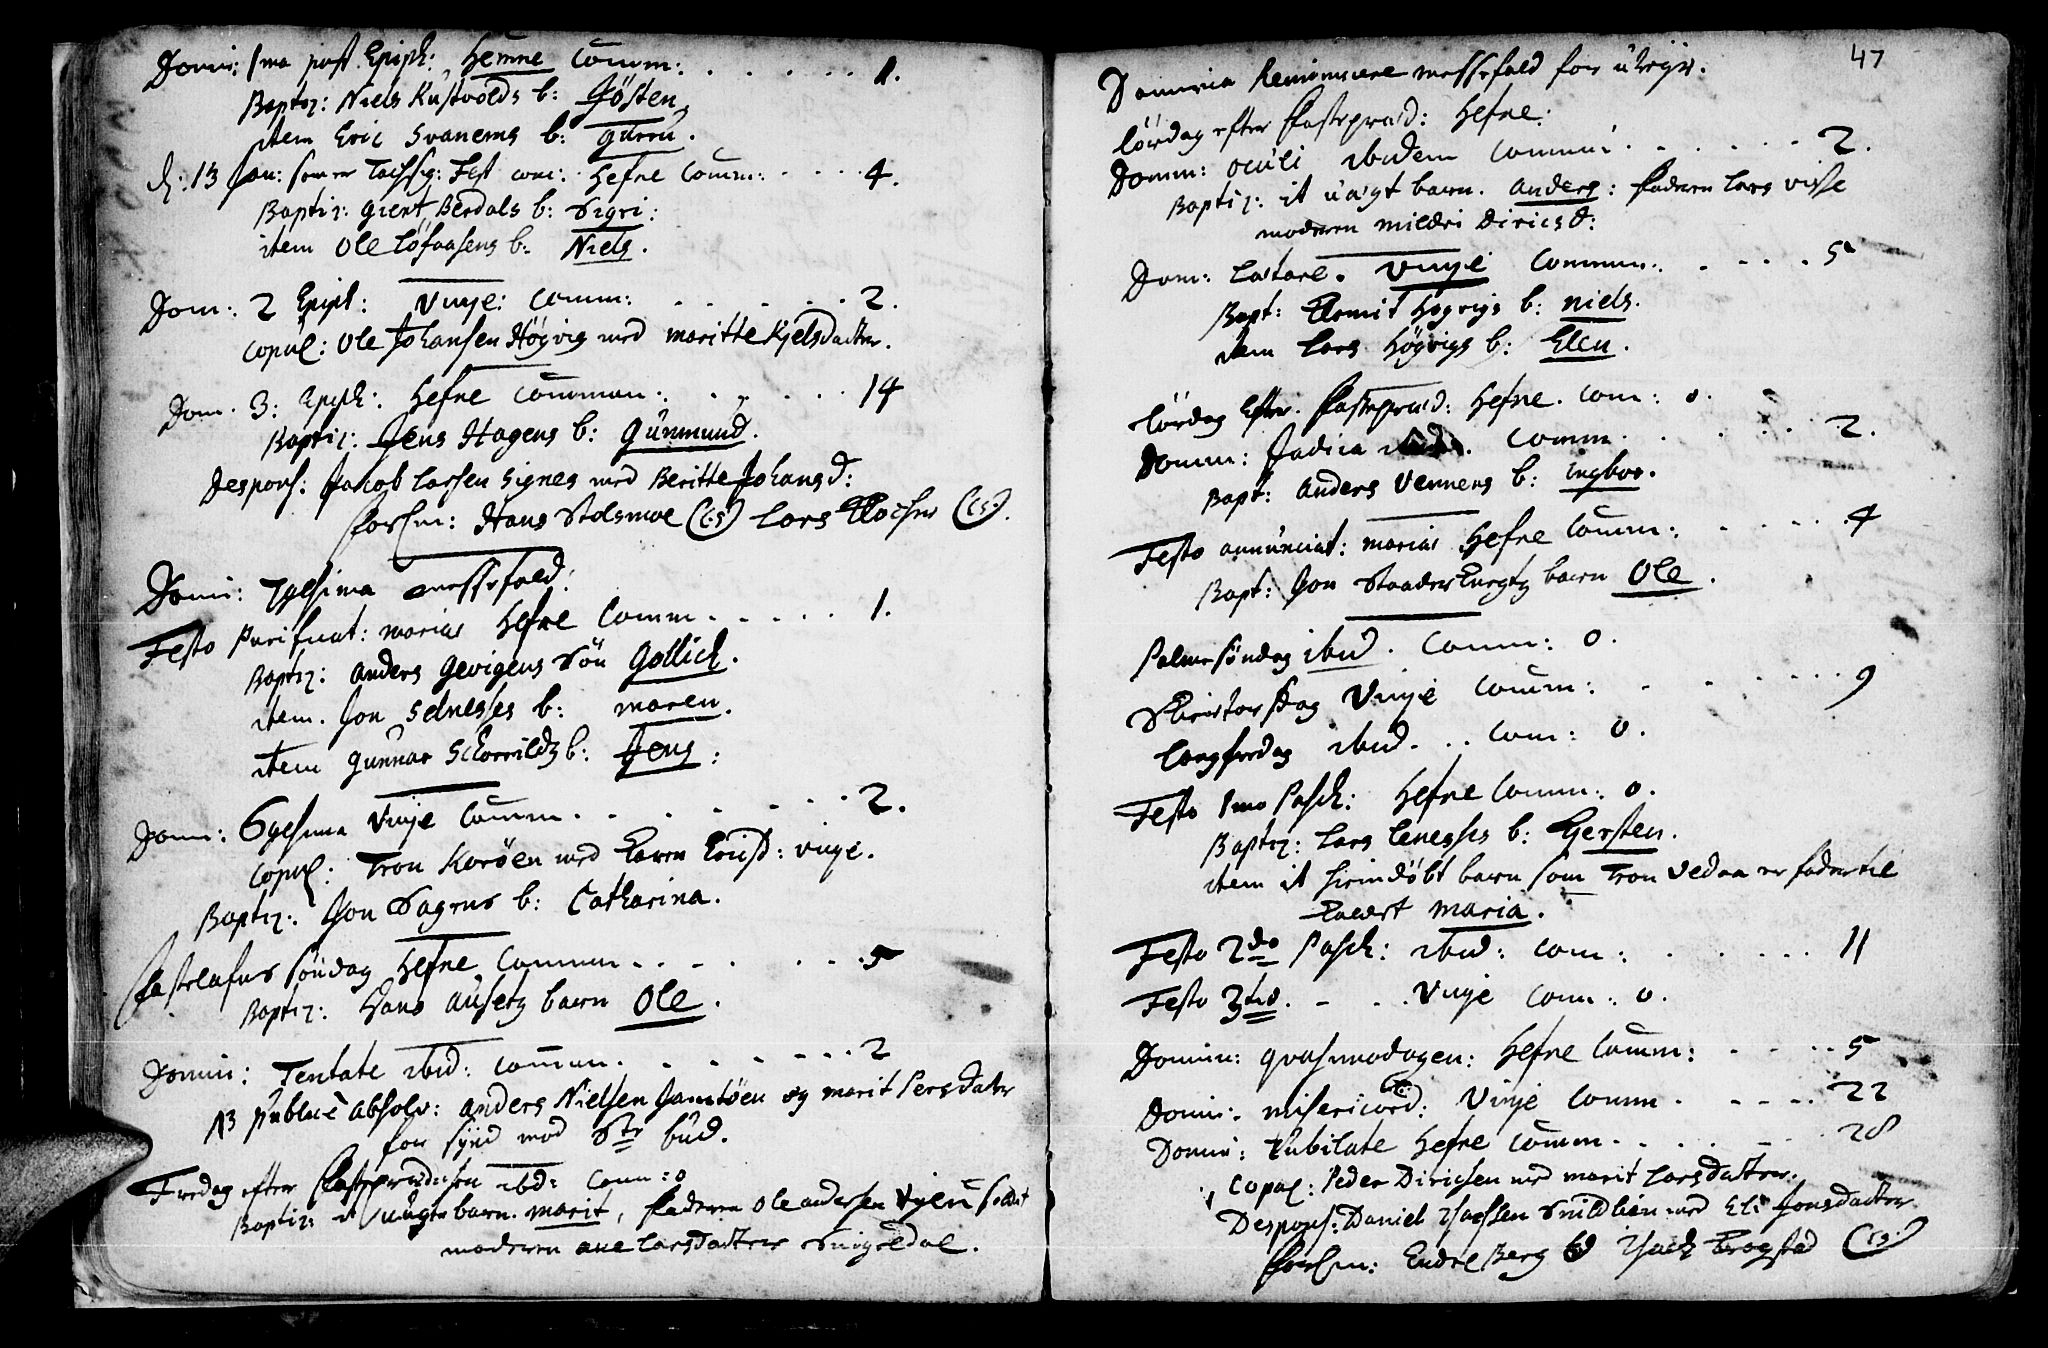 Domin: 1ma post Epiph: Hemne Comm: . . . . . . 1.
Baptiz: Niels Kustvolds b: Jösten
item Eric Svanems b: gurru.
d: 13 Jan: Fest Hefne Comm: . . . . 4.
Baptiz: Berdals b: Sigri:
item Ole Löfaasens b: Niels.
Dom: 2 Epiph: Vinje: Comm: . . . . . . 2.
Copul: Ole Johansen Högvig med maritte Kjelsdatter.
Dom. 3: Epiph: Hefne Commun: . . . . . 14
Baptiz: Jens Hagens b: Gunmund.
Despons: Jacob Larsen Signes med Beritte Johansd:
Hans Stolsmoe (LS) Lars (LS).
Domi: 7gesima messefald.
Festo Purificat: mariæ Hefne Comm. . . . . . 1.
Baptiz: Anders Gevigens Sön Gollich.
item. Jon Selnesses b: maren.
item Gunnar b: Jens:
Domi: 6gesima Vinje Comm. . . . . . . 2.
Copul: Tron Koröen med Karen vinje.
Baptiz: Jon b: Catharina.
Fastelafns Söndag Hefne Commun . . . . . . 5
Baptiz: Hans Ausetz barn Ole.
Domin: Tentate ibid: Commun. . . . . . . . 2
NB publicè absolv: Anders Nielsen og marit Persdatter
for synd mod bud.
Fredag efter ibd: Com: 0
Baptiz: it barn. marit, Faderen Ole andersen Soldat
moderen ane Larsdatter
47
Dominica Reminiscere messefald for uveijr.
Lördag efter Fastepræd: Hefne:
Domin: Oculi ibidem Commun . . . . . . 2.
Baptiz: it barn. Anders: Faderen Lars visse
moderen mildri Diricsd:
Dom: Lætare. Vinje Commun: . . . . 5
Bapt: högvigs b: niels.
item Lars Högvigs b: Elen.
Lördag Efter. Fastepræd: Hefne. Com: 0.
Domin: Judica Comm. . . . . . 2.
Bapt: Anders Vennens b: Ingbor.
Festo annunciat: mariæ Hefne Comm: . . . . . 4
Bapt: Jon barn Ole.
Palmesöndag ibid. Comm: 0.
Skiertorsdag Vinje Comm: . . . . . . 9
Langfredag ibid. . . Com: 0.
Festo 1mo Pasch: Hefne Comm: 0.
Baptiz: Lars Lenesses b: Gersten.
item it hiemdöbt barn som Tron Vedaa er fader til
Kaldet maria.
Festo 2do Pasch: ibid: Com: . . . . . . 11
Festo 3tio. - - . Vinje Com: 0.
Domin: Hefne Comm: . . . . 5
Domin: misericord: Vinje Comm . . . . . 22
Domin: Jubilate Hefne Comm. . . . . . 28
Copul: Peder Dirichsen med marit Larsdatter.
Despons: Daniel med Eli Jonsdatter
Endre Berg (LS)